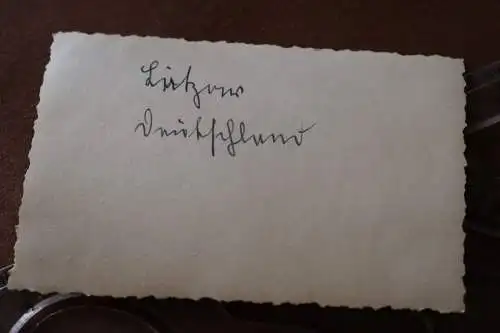 Lützow
Deutschland